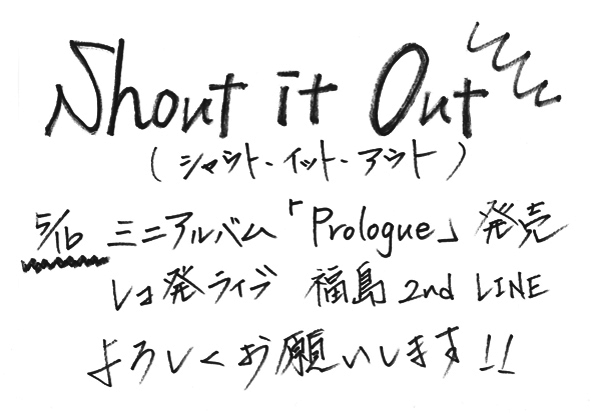 Shout it Out
(シャウト・イット・アウト)
5/16 ミニアルバム「Prologue」発売
レコ発ライブ 福島 2nd LINE
よろしくお願いします!!